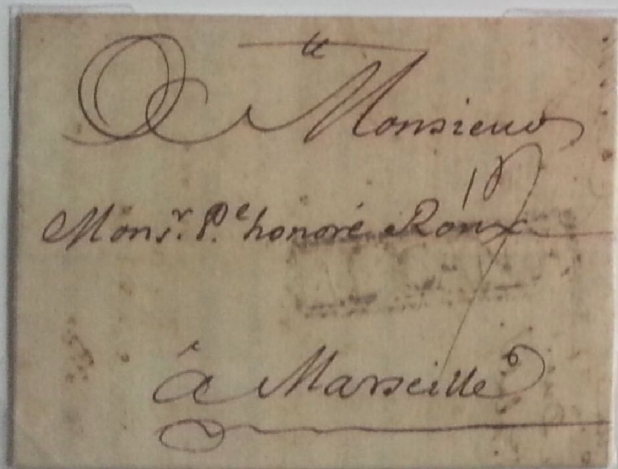 A Monsieur
Monsr. Pe. honoré Roux
â Marseille